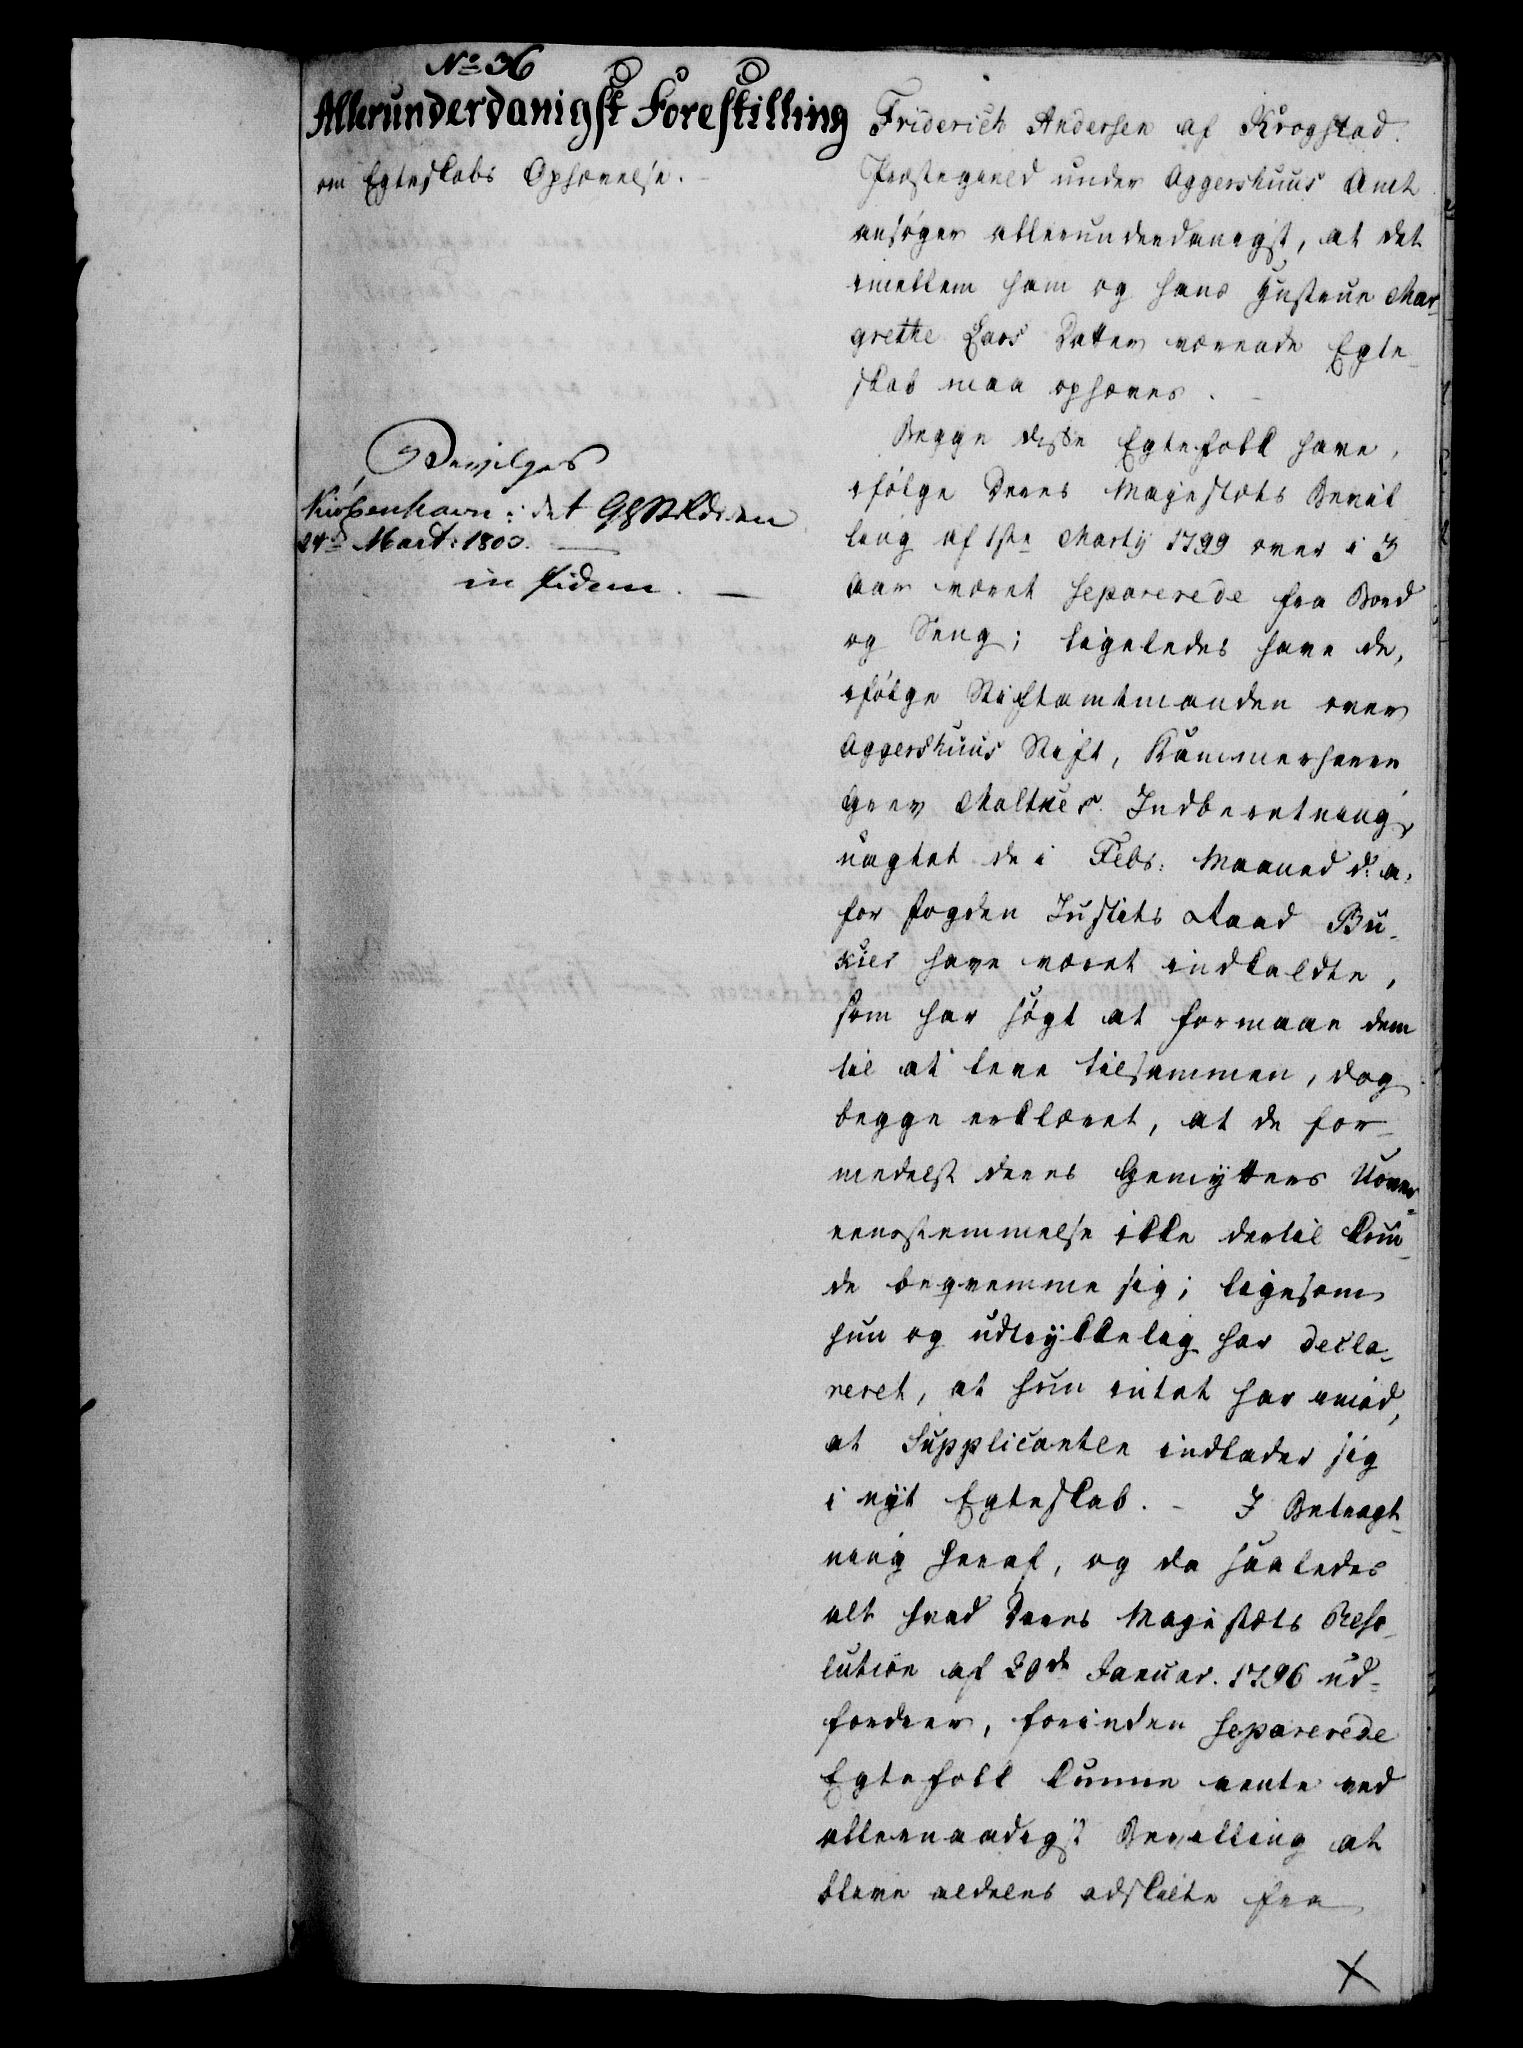 No 36
Allerunderdanigst Forestilling
om Egteskabs Ophævelse.
Bevilges
Kiøbenhavn: det
24de Mart: 1800.
in fidem.
Friderich Andersen af Krogstad
Præstegield under Aggershuus Amt
ansøger allerunderdanigst, at det
imellem ham og hans Hustrue Mar-
grethe Lars Datter værende Egte-
skab maa ophæves.
Begge disse Egtefolk have,
ifølge Deres Majestæts Bevil
ling af 1ste Martij 1799 over i 3
Aar været separerede fra Bord
og Seng; ligeledes have de,
ifølge Stiftamtmanden over
Aggershuus Stift, Kammerherre
Grev Moltkes Indberetning,
uagtet de i Febr: Maaned d: a:
for Fogden Justits Raad Bu-
kier have været indkaldte,
som har søgt at formaae dem
til at leve tilsammen, dog
begge erklæret, at de for-
medelst deres Gemytters Uover-
eensstemmelse ikke dertil kun-
de beqvemme sig; ligesom
hun og udtrykkelig har decla-
reret, at hun intet har imod,
at Supplicanten indlader sig
i nyt Egteskab. - I Betragt-
ning heraf, og da saaledes
alt hvad Deres Majestæts Reso-
lution af 20de Januar. 1796 ud-
fordrer, forinden separerede
Egtefolk kunne vente ved
allernaadigst Bevilling at
blive aldeles adskilte fra